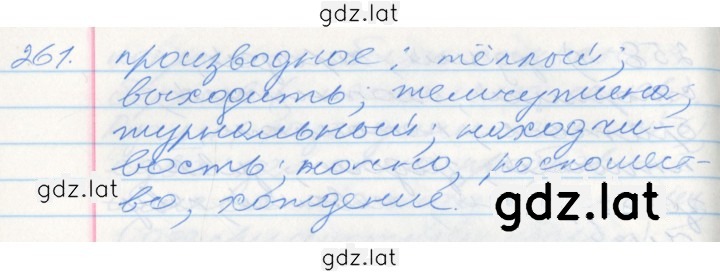 gdz.lat
261. производное; тёплый;
выходить; жемчужина,
журнальный; находчи-
вость; можно, роскошест-
gdz.lat
во, хождение.
gdz.lat
gdz.lat